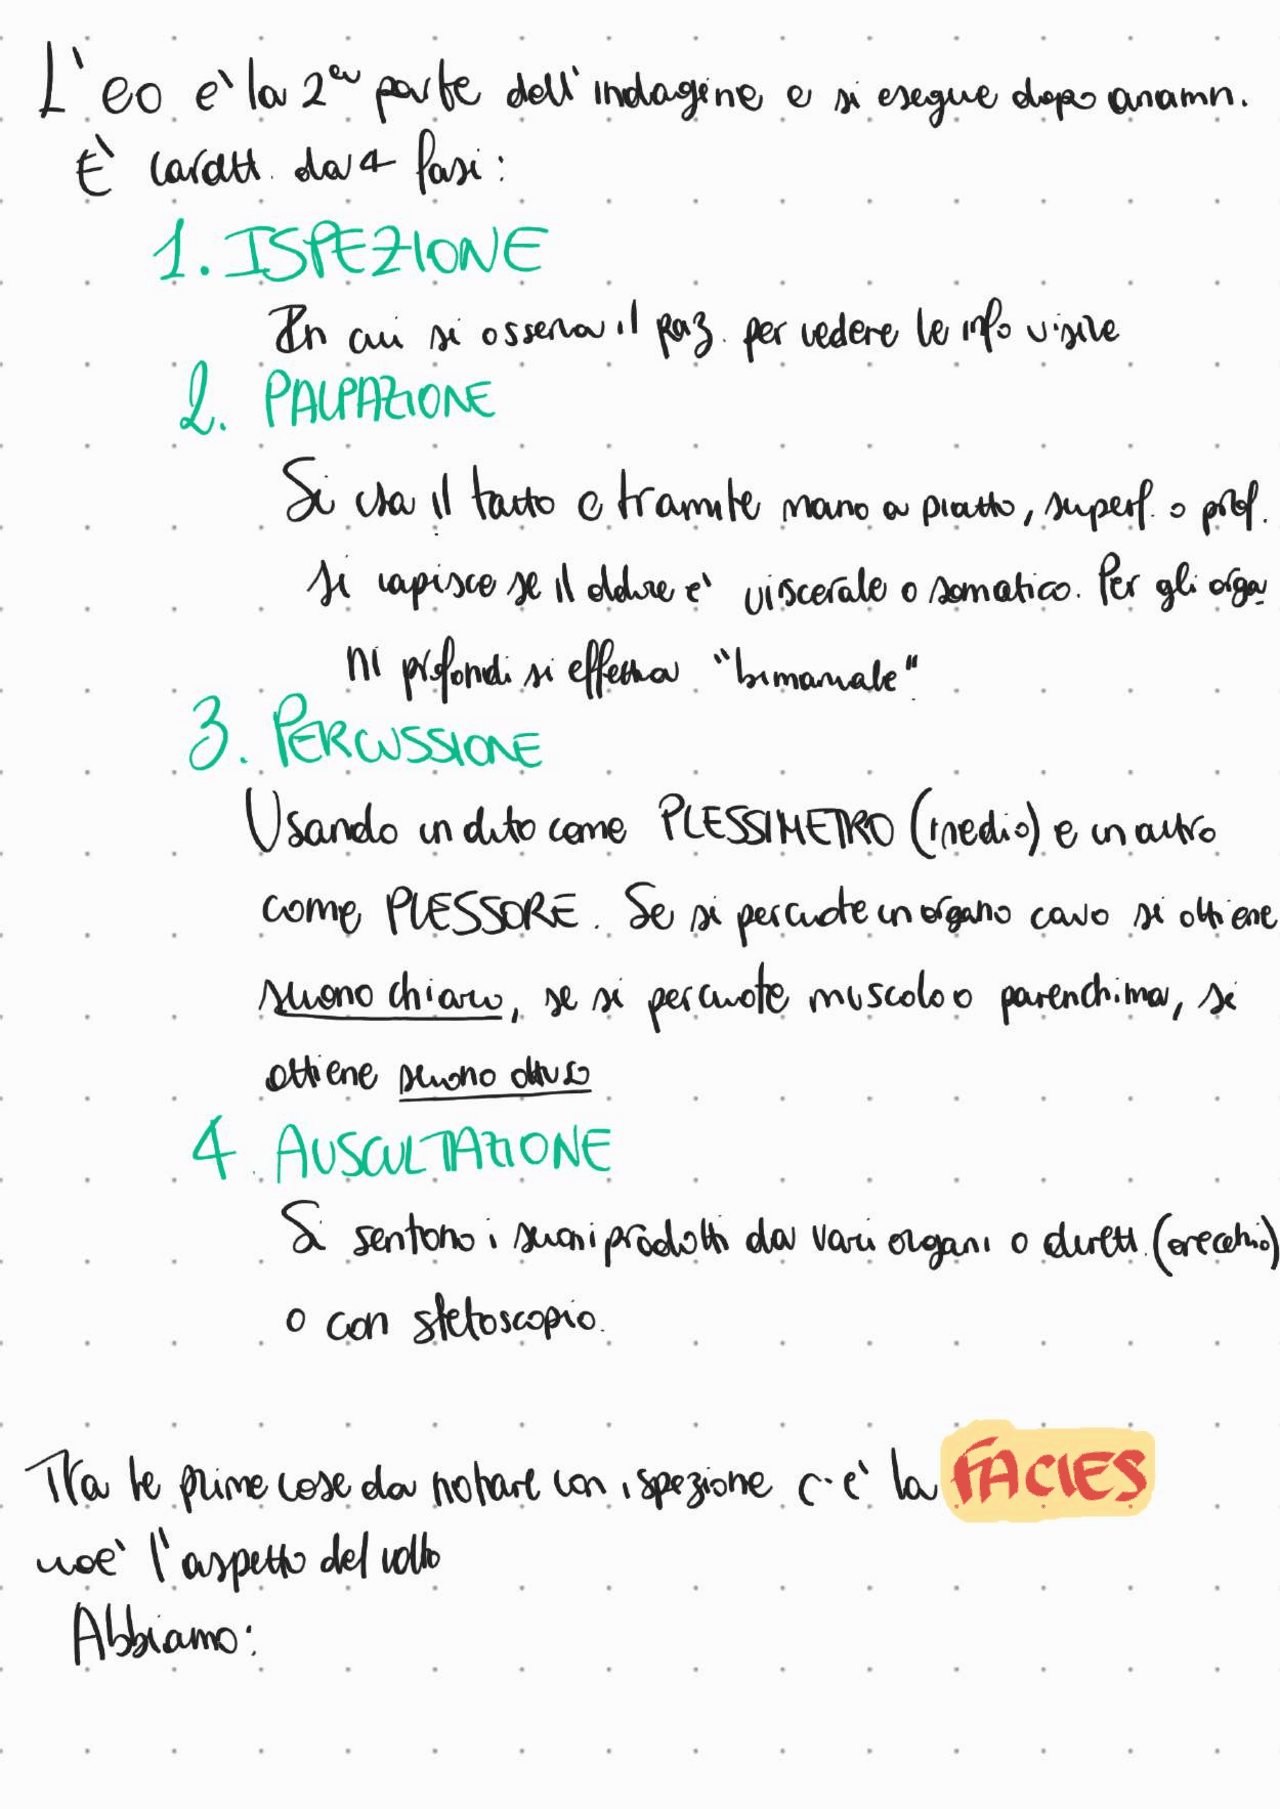 L'eo e' la 2ᵃ parte dell'indagine e si esegue dopo anamn.
E' caratt. da 4 fasi:
1. ISPEZIONE
In cui si osserva il paz. per vedere le info visive
2. PALPAZIONE
Si usa il tatto e tramite mano a piatto, superf. o prof.
si capisce se il dolore e' viscerale o somatico. Per gli orga
ni profondi si effettua "bimanuale"
3. PERCUSSIONE
Usando un dito come PLESSIMETRO (medio) e un altro
come PLESSORE. Se si percuote un organo cavo si ottiene
suono chiaro, se si percuote muscolo o parenchima, si
ottiene suono ottuso
4. AUSCULTAZIONE
Si sentono i suoni prodotti da vari organi o dirett. (orecchio)
o con stetoscopio.
Tra le prime cose da notare con ispezione c'e' la FACIES
cioe' l'aspetto del volto
Abbiamo: